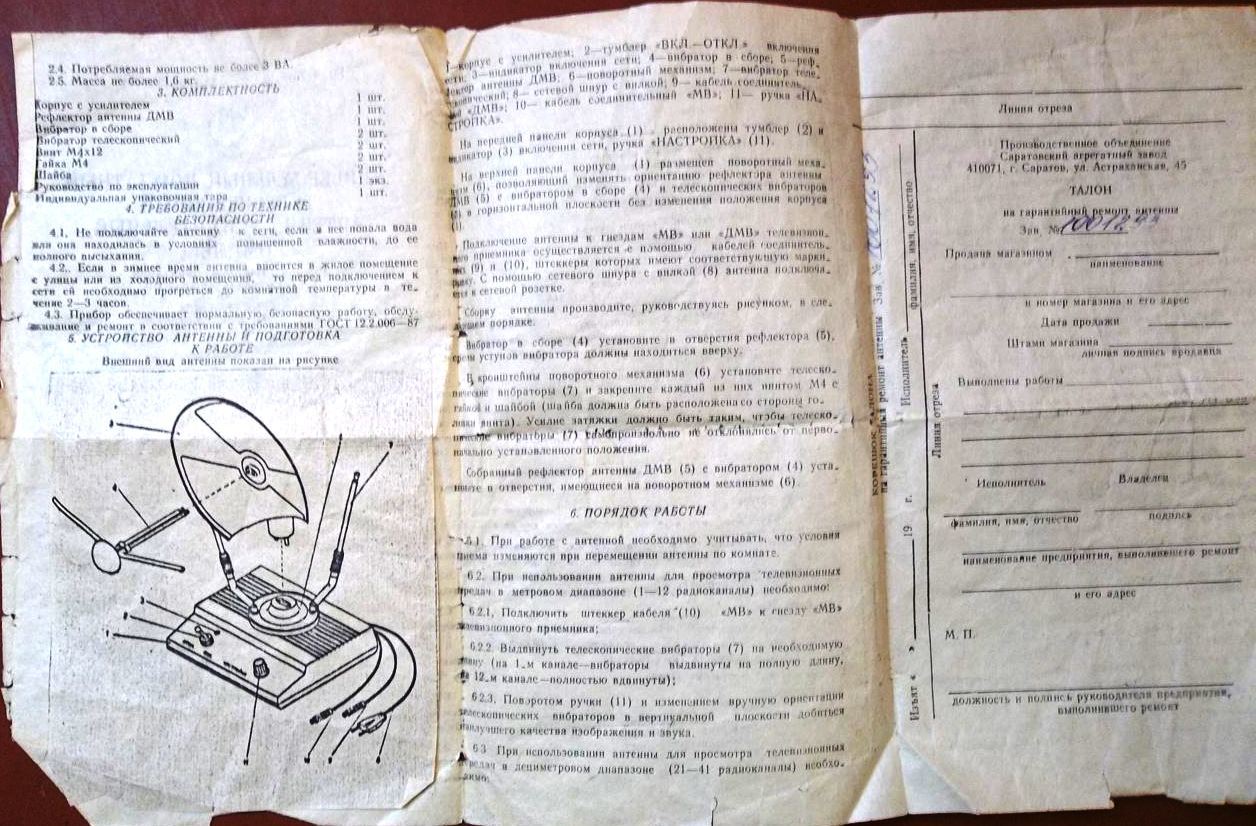 2.4. Потребляемая мощность не более 3 ВА.
2.5. Масса не более 1,6 кг.
3. КОМПЛЕКТНОСТЬ
Корпус с усилителем 1 шт.
Рефлектор антенны ДМВ 1 шт.
Вибратор в сборе 1 шт.
Вибратор телескопический 2 шт.
Винт М4х12 2 шт.
Гайка М4 2 шт.
Шайба 2 шт.
Руководство по эксплуатации 1 экз.
Индивидуальная упаковочная тара 1 шт.
4. ТРЕБОВАНИЯ ПО ТЕХНИКЕ
БЕЗОПАСНОСТИ
4.1. Не подключайте антенну к сети, если в нее попала вода
или она находилась в условиях повышенной влажности, до ее
полного высыхания.
4.2. Если в зимнее время антенна вносится в жилое помещение
с улицы или из холодного помещения, то перед подключением к
сети ей необходимо прогреться до комнатной температуры в те-
чение 2—3 часов.
4.3. Прибор обеспечивает нормальную, безопасную работу, обслу-
живание и ремонт в соответствии с требованиями ГОСТ 12.2.006—87
5. УСТРОЙСТВО АНТЕННЫ И ПОДГОТОВКА
К РАБОТЕ
Внешний вид антенны показан на рисунке
1—корпус с усилителем; 2—тумблер «ВКЛ.—ОТКЛ.» включения
сети; 3—индикатор включения сети; 4—вибратор в сборе; 5—реф-
лектор антенны ДМВ; 6—поворотный механизм; 7—вибратор теле-
скопический; 8— сетевой шнур с вилкой; 9— кабель соединитель-
ный «ДМВ»; 10— кабель соединительный «МВ»; 11— ручка «НА-
СТРОЙКА».
На передней панели корпуса (1) расположены тумблер (2) и
индикатор (3) включения сети, ручка «НАСТРОЙКА» (11).
На верхней панели корпуса (1) размещен поворотный меха-
низм (6), позволяющий изменять ориентацию рефлектора антенны
ДМВ (5) с вибратором в сборе (4) и телескопических вибраторов
(7) в горизонтальной плоскости без изменения положения корпуса
(1).
Подключение антенны к гнездам «МВ» или «ДМВ» телевизион-
ного приемника осуществляется с помощью кабелей соединитель-
ных (9) и (10), штеккеры которых имеют соответствующую марки-
ровку. С помощью сетевого шнура с вилкой (8) антенна подключа-
ется к сетевой розетке.
Сборку антенны производите, руководствуясь рисунком, в сле-
дующем порядке.
Вибратор в сборе (4) установите в отверстия рефлектора (5),
уступов вибратора должны находиться вверху.
В кронштейны поворотного механизма (6) установите телеско-
пические вибраторы (7) и закрепите каждый из них винтом М4 с
гайкой и шайбой (шайба должна быть расположена со стороны го-
ловки винта). Усилие затяжки должно быть таким, чтобы телеско-
пические вибраторы (7) самопроизвольно не отклонялись от перво-
начально установленного положения.
Собранный рефлектор антенны ДМВ (5) с вибратором (4) уста-
новите в отверстия, имеющиеся на поворотном механизме (6).
6. ПОРЯДОК РАБОТЫ
6.1. При работе с антенной необходимо учитывать, что условия
приема изменяются при перемещении антенны по комнате.
6.2. При использовании антенны для просмотра телевизионных
передач в метровом диапазоне (1—12 радиоканалы) необходимо:
6.2.1. Подключить штеккер кабеля (10) «МВ» к гнезду «МВ»
телевизионного приемника;
6.2.2. Выдвинуть телескопические вибраторы (7) на необходимую
длину (на 1-м канале—вибраторы выдвинуты на полную длину,
на 12-м канале—полностью вдвинуты);
6.2.3. Поворотом ручки (11) и изменением вручную ориентации
телескопических вибраторов в вертикальной плоскости добиться
наилучшего качества изображения и звука.
6.3 При использовании антенны для просмотра телевизионных
передач в дециметровом диапазоне (21—41 радиоканалы) необхо-
димо:
КОРЕШОК ТАЛОНА
на гарантийный ремонт антенны Зав. №
Изъят « » 19 г. Исполнитель
фамилия, имя, отчество
Линия отреза
Линия отреза
Производственное объединение
Саратовский агрегатный завод
410071, г. Саратов, ул. Астраханская, 45
ТАЛОН
на гарантийный ремонт антенны
Зав. №
Продана магазином
наименование
и номер магазина и его адрес
Дата продажи
Штамп магазина
личная подпись продавца
Выполнены работы
Исполнитель Владелец
фамилия, имя, отчество подпись
наименование предприятия, выполнившего ремонт
и его адрес
М. П.
должность и подпись руководителя предприятия,
выполнившего ремонт